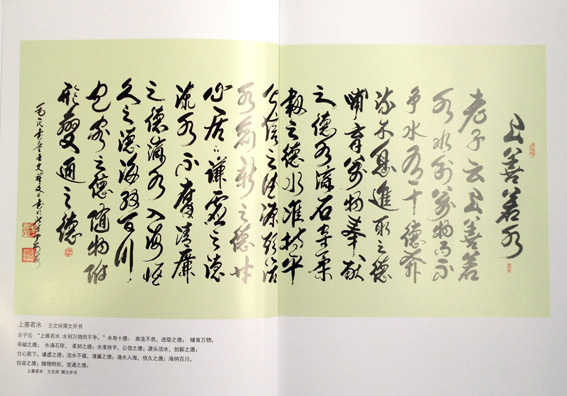 上善若水
老子云上善若
水水利萬物而不
争水有十德奔
流不息進取之德
哺育萬物奉献
之德水滴石穿柔
韧之德水准持平
公信之德源头活
水創新之德甘
心居下謙虚之德
流水不腐清廉
之德滴水入海恒
久之德海纳百川
包容之德随物附
形變通之德
上善若水 王文祥撰文并书
老子云:“上善若水,水利万物而不争。”水有十德:奔流不息,进取之德;哺育万物,
奉献之德;水滴石穿,柔韧之德;水准持平,公信之德;源头活水,创新之德;
甘心居下,谦虚之德;流水不腐,清廉之德;滴水入海,恒久之德;海纳百川,
包容之德;随物附形,变通之德。
上善若水 王文祥 撰文并书